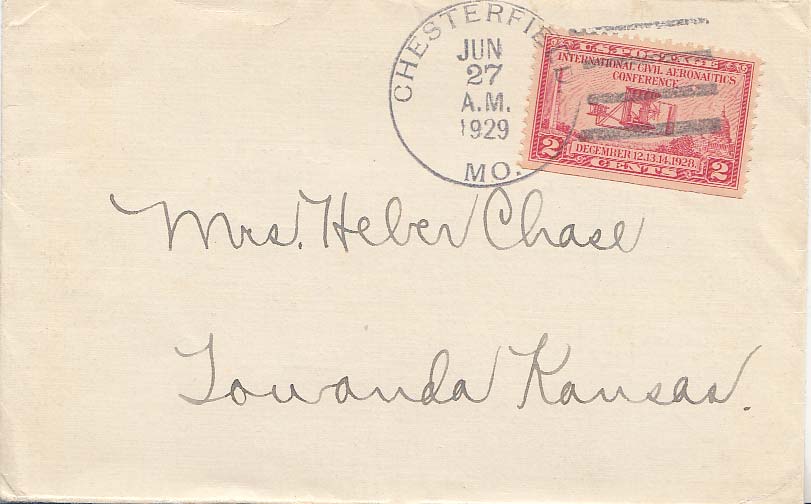 CHESTERFIE
JUN
27
A.M.
1929
MO.
INTERNATIONAL CIVIL AERONAUTICS
CONFERENCE
DECEMBER 12.13.14.1928.
2 CENTS 2
Mrs. Heber Chase
Towanda Kansas.